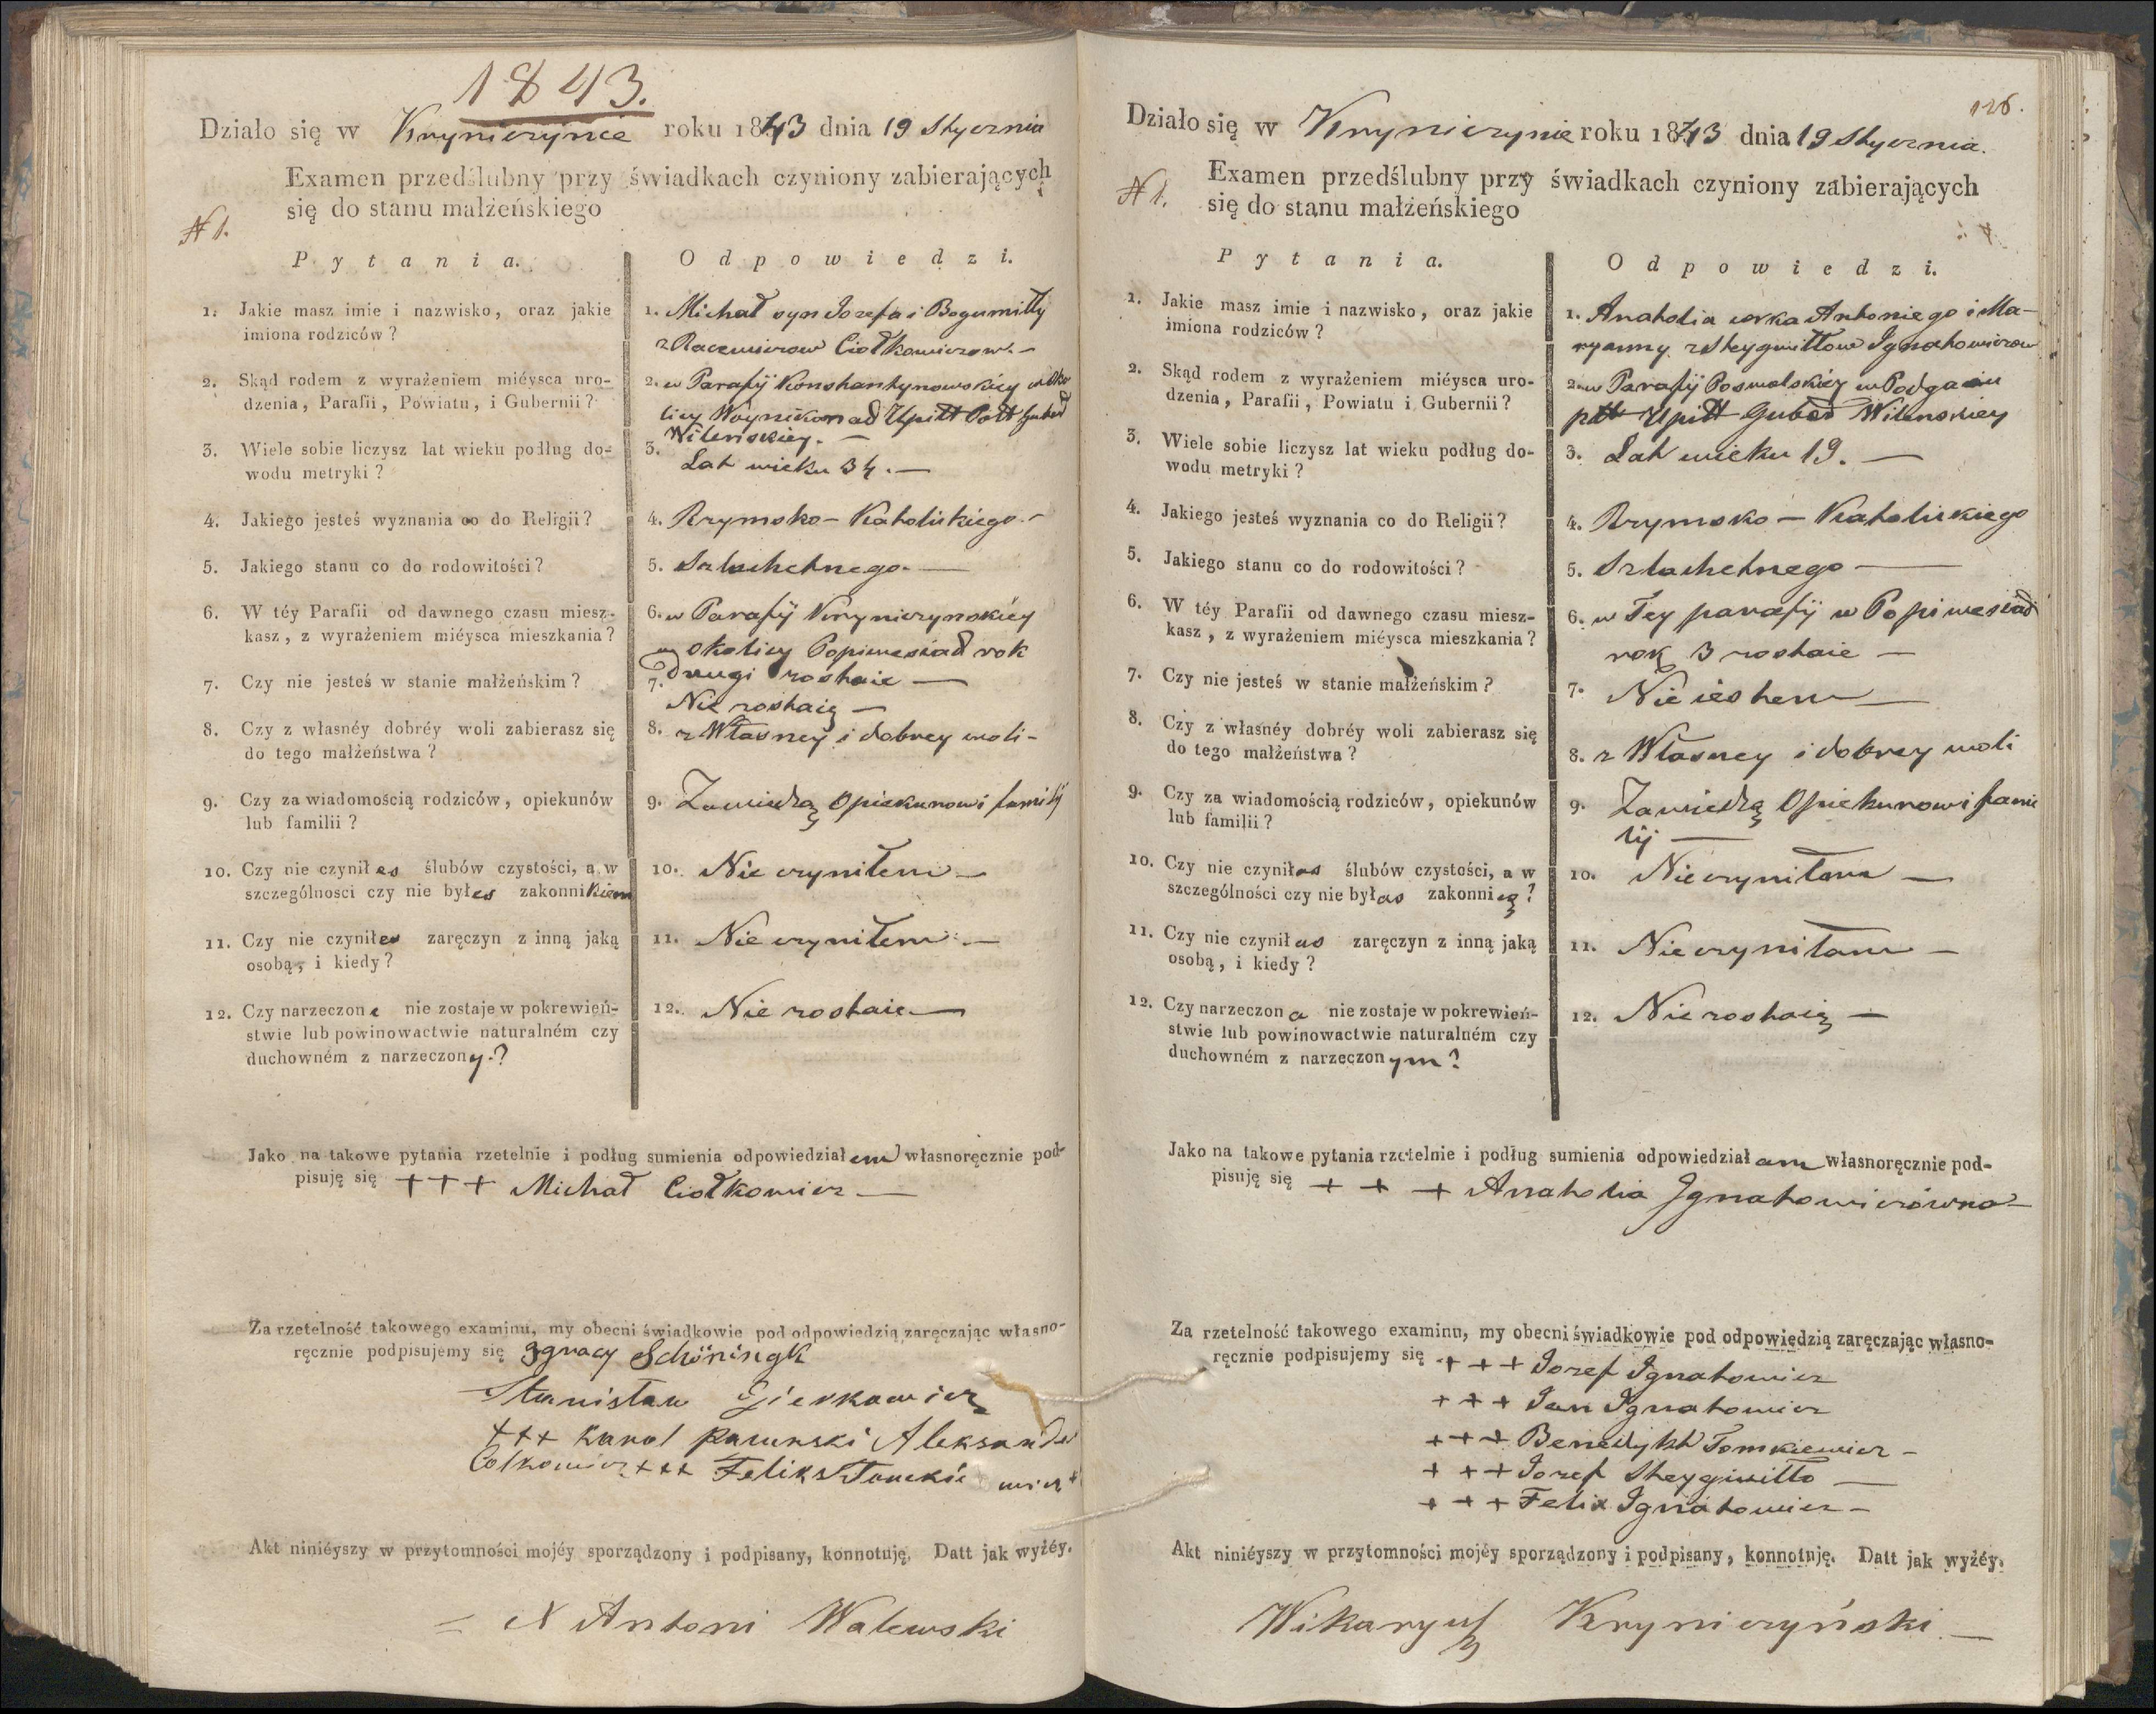 1843.
Działo się w Kryniczynie roku 1843 dnia 19 Stycznia
Examen przedślubny przy świadkach czyniony zabierających
się do stanu małżeńskiego
N 1.
Pytania. Odpowiedzi.
1. Jakie masz imie i nazwisko, oraz jakie
imiona rodziców?
1. Michał syn Jozefa i Bogumiłły
z Racewiczow Ciołkowiczow. —
2. Skąd rodem z wyrażeniem miéysca uro-
dzenia, Parafii, Powiatu, i Gubernii?
2. w Parafij Konstantynowskiey w Oko
licy Woynikonach Upitt Pott Guber
Wilenskiey. —
3. Wiele sobie liczysz lat wieku podług do-
wodu metryki?
3. Lat wieku 34. —
4. Jakiego jesteś wyznania co do Religii?
4. Rzymsko - Katolickiego -
5. Jakiego stanu co do rodowitości?
5. Szlachetnego —
6. W téy Parafii od dawnego czasu miesz-
kasz, z wyrażeniem miéysca mieszkania?
6. w Parafij Kryniczynskiey
w okolicy Popiwesiach rok
drugi zostaie —
7. Czy nie jesteś w stanie małżeńskim?
7. Nie zostaię —
8. Czy z własnéy dobréy woli zabierasz się
do tego małżeństwa?
8. z Własney i dobrey woli -
9. Czy za wiadomością rodziców, opiekunów
lub familii?
9. Zawiedzą Opiekunowi familij
10. Czy nie czyniłes ślubów czystości, a w
szczególnosci czy nie byłes zakonnikiem
10. Nie czyniłem —
11. Czy nie czyniłes zaręczyn z inną jaką
osobą, i kiedy?
11. Nie czyniłem —
12. Czy narzeczone nie zostaje w pokrewień-
stwie lub powinowactwie naturalném czy
duchowném z narzeczony.?
12. Nie zostaie —
Jako na takowe pytania rzetelnie i podług sumienia odpowiedziałem własnoręcznie pod-
pisuję się +++ Michał Ciołkowicz —
Za rzetelność takowego examinu, my obecni świadkowie pod odpowiedzią zaręczając własno-
ręcznie podpisujemy się Ignacy Schöningk
Stanisław
+++ Karol Aleksander
Colkowicz +++ Feliks
Akt niniéyszy w przytomności mojéy sporządzony i podpisany, konnotuję. Datt jak wyżéy.
X Antoni Walewski
126.
Działo się w Kryniczynie roku 1843 dnia 19 Stycznia.
N 1.
Examen przedślubny przy świadkach czyniony zabierających
się do stanu małżeńskiego
Pytania. Odpowiedzi.
1. Jakie masz imie i nazwisko, oraz jakie
imiona rodziców?
1. Anatolia corka Antoniego i Ma-
ryanny z Steygwiłłow Ignatowiczow
2. Skąd rodem z wyrażeniem miéysca uro-
dzenia, Parafii, Powiatu i Gubernii?
2. w Parafij Poswolskiey w Podgaiu
ptt Upitt Guber Wilenskiey
3. Wiele sobie liczysz lat wieku podług do-
wodu metryki?
3. Lat wieku 19. —
4. Jakiego jesteś wyznania co do Religii?
4. Rzymsko — Katolickiego
5. Jakiego stanu co do rodowitości?
5. Szlachetnego —
6. W téy Parafii od dawnego czasu miesz-
kasz, z wyrażeniem miéysca mieszkania?
6. w Tey parafij w Popiwesiach
rok 3 zostaie —
7. Czy nie jesteś w stanie małżeńskim?
7. Nie iestem —
8. Czy z własnéy dobréy woli zabierasz się
do tego małżeństwa?
8. z Własney i dobrey woli
9. Czy za wiadomością rodziców, opiekunów
lub familii?
9. Zawiedzą Opiekunowi fami
lij —
10. Czy nie czyniłas ślubów czystości, a w
szczególności czy nie byłas zakonnicą?
10. Nieczyniłam —
11. Czy nie czyniłas zaręczyn z inną jaką
osobą, i kiedy?
11. Nieczyniłam —
12. Czy narzeczona nie zostaje w pokrewień-
stwie lub powinowactwie naturalném czy
duchowném z narzeczonym?
12. Nie zostaię —
Jako na takowe pytania rzetelnie i podług sumienia odpowiedziałam własnoręcznie pod-
pisuję się + + + Anatolia Ignatowiczówna —
Za rzetelność takowego examinu, my obecni świadkowie pod odpowiędzią zaręczając własno-
ręcznie podpisujemy się + + + Jozef Ignatowicz
+ + + Jan Ignatowicz
+ + + Benedykt Tomkiewicz -
+ + + Jozef Steygwiłło —
+ + + Felix Ignatowicz -
Akt niniéyszy w przytomności mojéy sporządzony i podpisany, konnotuję. Datt jak wyżéy.
Wikaryusz Kryniczyński —